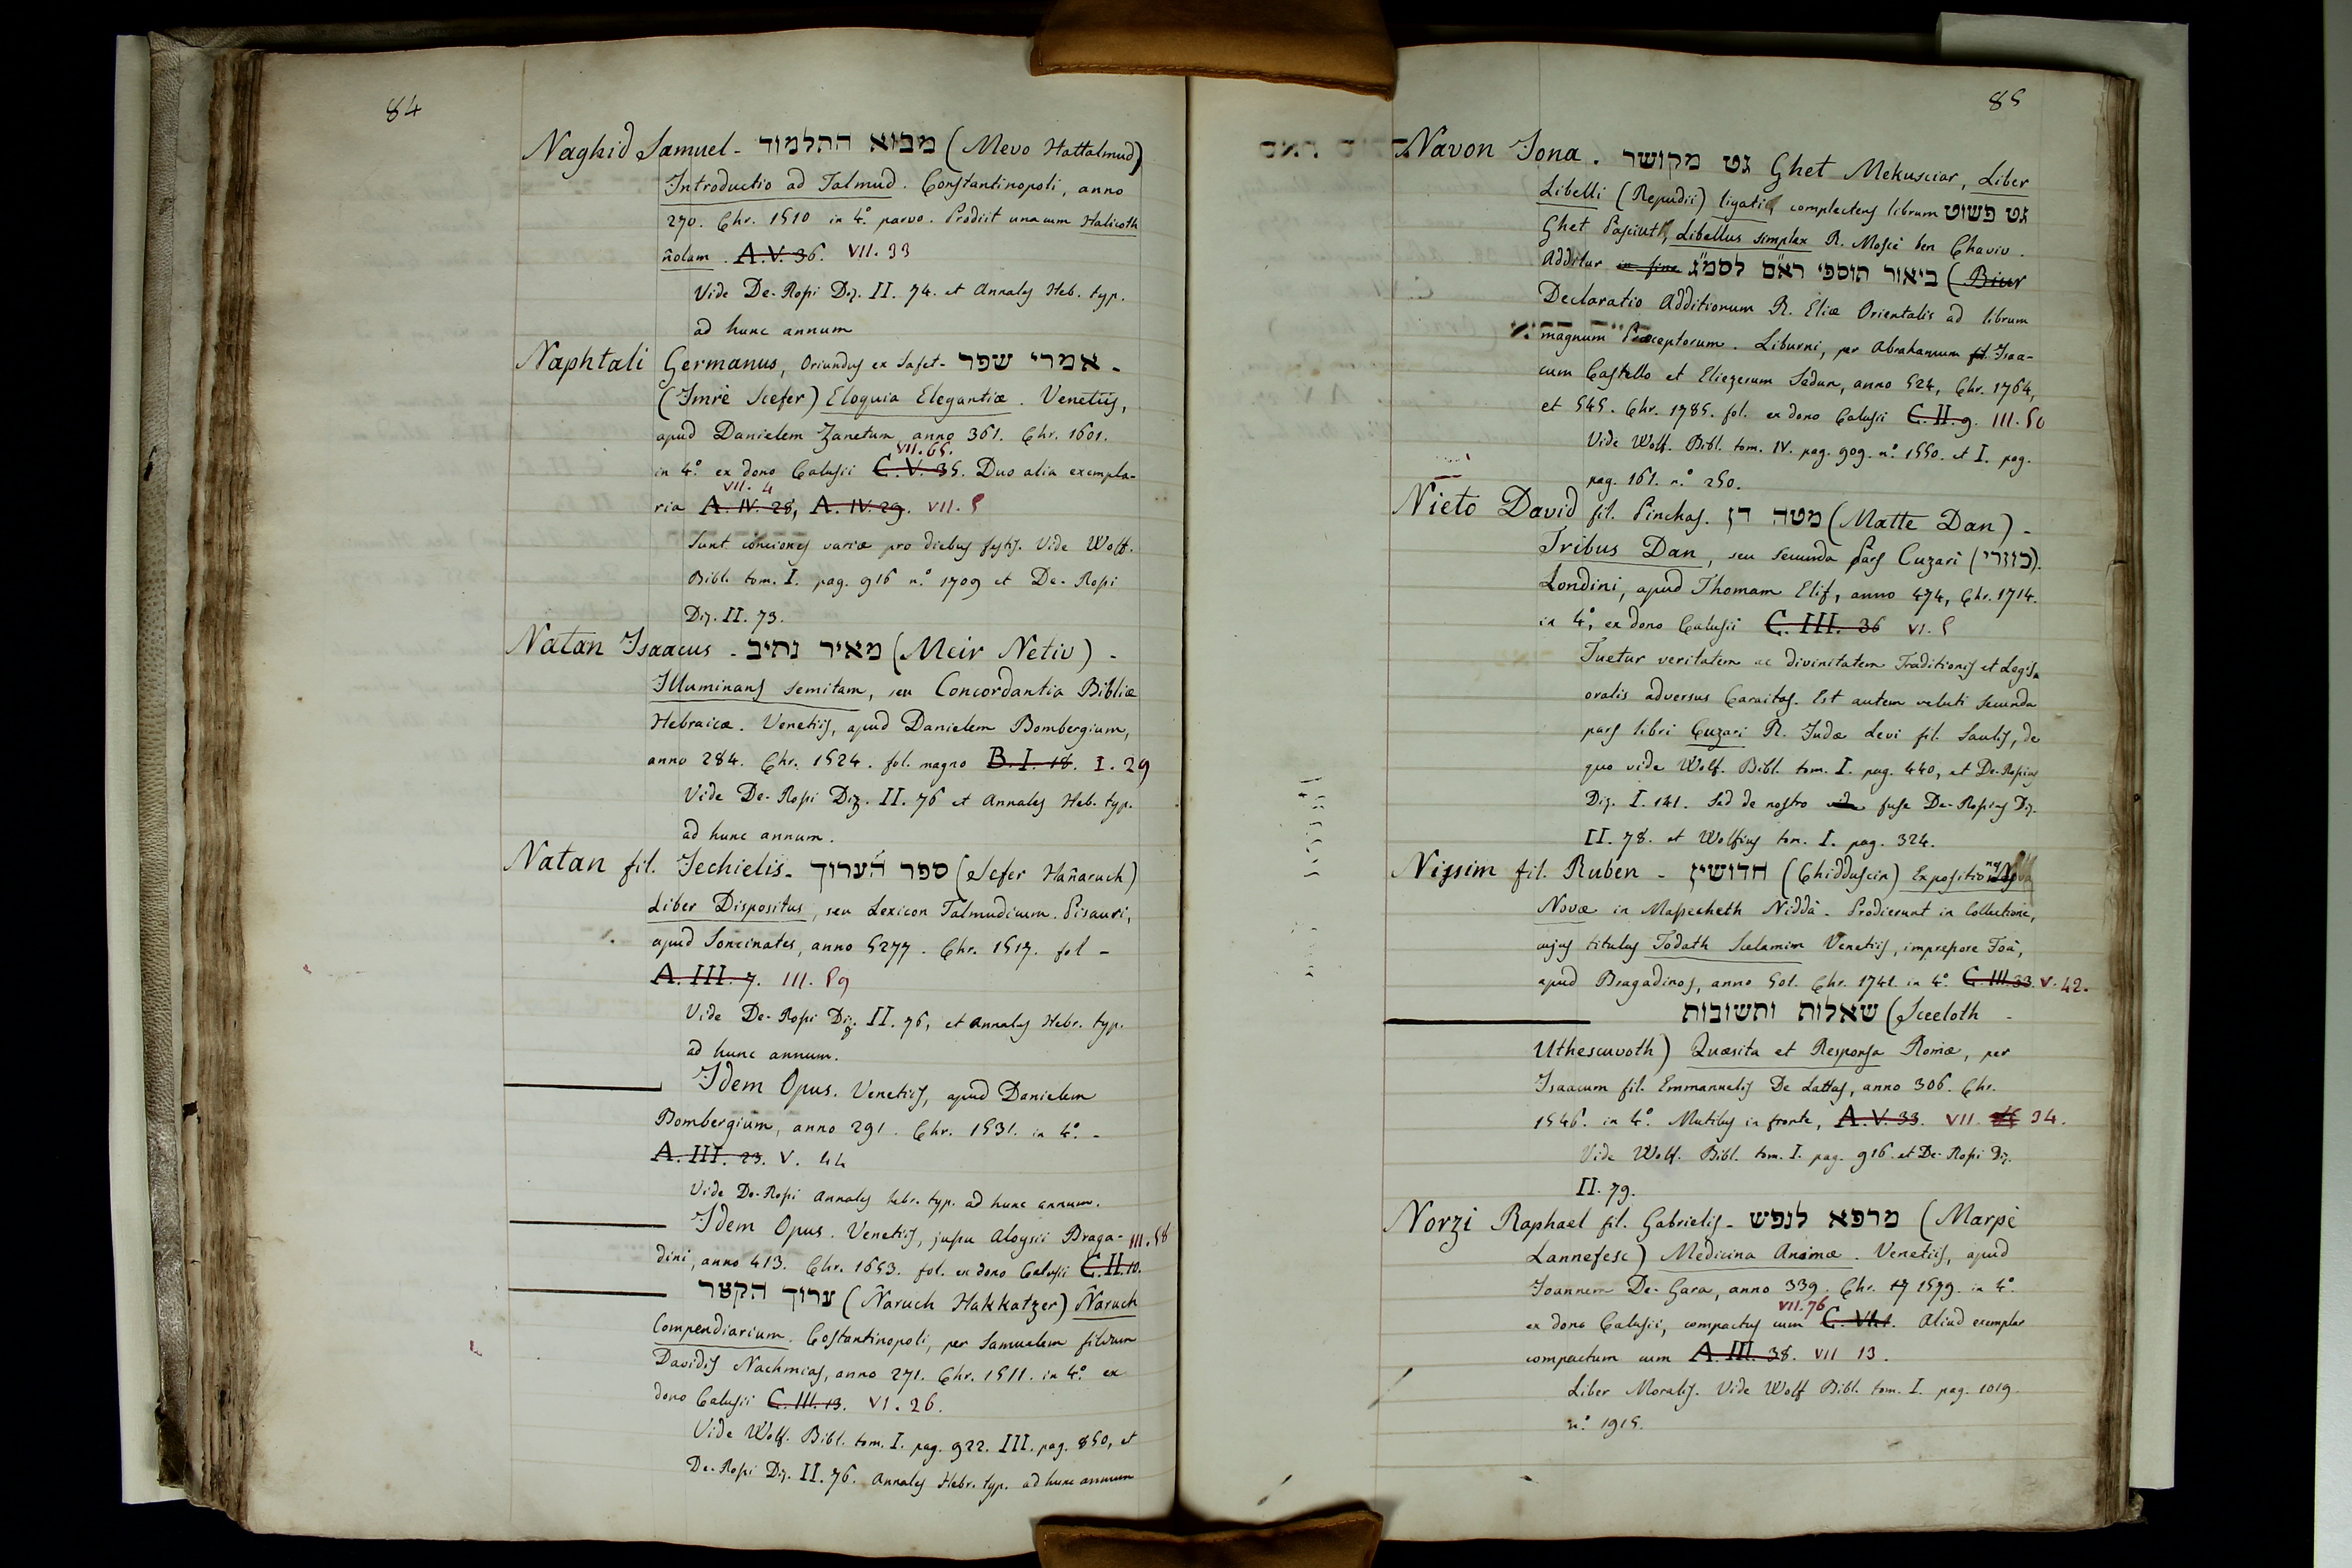 84
Naghid Samuel - מבוא התלמוד (Mevo Hattalmud)
Introductio ad Talmud. Constantinopoli, anno
270. Chr. 1510 in 4.º parvo. Prodiit unacum Halicoth
ñolam. A.V. 36. VII. 33
Vide De-Rossi Diz. II. 74. et Annales Heb. typ.
ad hunc annum
Naphtali Germanus, Oriundus ex Safet - אמרי שפר -
(Imrè Scefer) Eloquia Elegantiæ. Venetiis,
apud Danielem Zanetum anno 361. Chr. 1601.
VII. 65.
in 4.º ex dono Calusii C.V. 35. Duo alia exempla-
VII. 4
ria A. IV. 28, A. IV. 29. VII. 5
Sunt conciones variæ pro diebus festis. Vide Wolf.
Bibl. tom. I. pag. 916 n.º 1709 et De-Rossi
Diz. II. 73.
Natan Isaacus - מאיר נתיב (Meir Netiv) -
Illuminans semitam, seu Concordantia Bibliæ
Hebraicæ. Venetiis, apud Danielem Bombergium,
anno 284. Chr. 1524. fol. magno B. I. 18. I. 29
Vide De-Rossi Diz. II. 76 et Annales Heb. typ.
ad hunc annum.
Natan fil. Jechielis - ספר הערוך (Sefer Hañaruch)
Liber Dispositus, seu Lexicon Talmudicum. Pisauri,
apud Soncinates, anno 5277. Chr. 1517. fol -
A. III. 7. III. 59
Vide De-Rossi Diz. II. 76, et Annales Hebr. typ.
ad hunc annum.
Idem Opus. Venetiis, apud Danielem
Bombergium, anno 291. Chr. 1531. in 4.º -
A. III. 23. V. 44
Vide De-Rossi Annales hebr. typ. ad hunc annum.
Idem Opus. Venetiis, jussu Aloysii Braga- III. 58
dini, anno 413. Chr. 1653. fol. ex dono Calusii C. II. 10.
ערוך הקצר (Ñaruch Hakkatzer) Ñaruch
Compendiarium. Costantinopoli, per Samuelem filium
Davidis Nachmias, anno 271. Chr. 1511. in 4.º ex
dono Calusii C. III. 13. VI. 26.
Vide Wolf. Bibl. tom. I. pag. 922. III. pag. 850, et
De-Rossi Diz. II. 76. Annales Hebr. typ. ad hunc annum
85
Navon Jona. גט מקושר Ghet Mekusciar, Liber
Libelli (Repudii) ligati, complectens librum גט פשוט
Ghet Pasciut, Libellus simplex R. Mosè ben Chaviv.
Additur in fine ביאור תוספי רא״ם לסמ״ג (Biur
Declaratio Additionum R. Eliæ Orientalis ad librum
magnum Præceptorum. Liburni, per Abrahamum fil. Isaa-
cum Castello et Eliezerum Sadun, anno 524, Chr. 1764,
et 545. Chr. 1785. fol. ex dono Calusii C. II. 9. III. 50
Vide Wolf. Bibl. tom. IV. pag. 909. n.º 1550. et I. pag.
pag. 161. n.º 250.
Nieto David fil. Pinchas. מטה דן (Matte Dan) -
Tribus Dan, seu secunda Pars Cuzari (כוזרי).
Londini, apud Thomam Elif, anno 474, Chr. 1714.
in 4.º, ex dono Calusii C. III. 36 VI. 5
Tuetur veritatem ac divinitatem Traditionis et Legis
oralis adversus Caraitas. Est autem veluti secunda
pars libri Cuzari R. Judæ Levi fil. Saulis, de
quo vide Wolf. Bibl. tom. I. pag. 440, et De-Rossius
Diz. I. 141. Sed de nostro vide fuse De-Rossius Diz.
II. 78. et Wolfius tom. I. pag. 324.
Nissim fil. Ruben - חדושין (Chidduscin) Expositiones
Novæ in Massecheth Niddà. Prodierunt in Collectione,
cujus titulus Todath Scelamim Venetiis, impressore Foà,
apud Bragadinos, anno 501. Chr. 1741. in 4.º C. III. 33. V. 42.
שאלות ותשובות (Sceeloth -
Uthescuvoth) Quæsita et Responsa Romæ, per
Isaacum fil. Emmanuelis De Lattas, anno 306. Chr.
1546. in 4.º Mutilus in fronte, A. V. 33. VII. 34.
Vide Wolf. Bibl. tom. I. pag. 916. et De-Rossi Diz.
II. 79.
Norzi Raphael fil. Gabrielis - מרפא לנפש (Marpè
Lannefesc) Medicina Animæ. Venetiis, apud
Joannem De-Gara, anno 339. Chr. 17 1579. in 4.º
VII. 76
ex dono Calusii, compactus cum C. VI.1. Aliud exemplar
compactum cum A. III. 38. VII 13.
Liber Moralis. Vide Wolf Bibl. tom. I. pag. 1019.
n.º 1915.